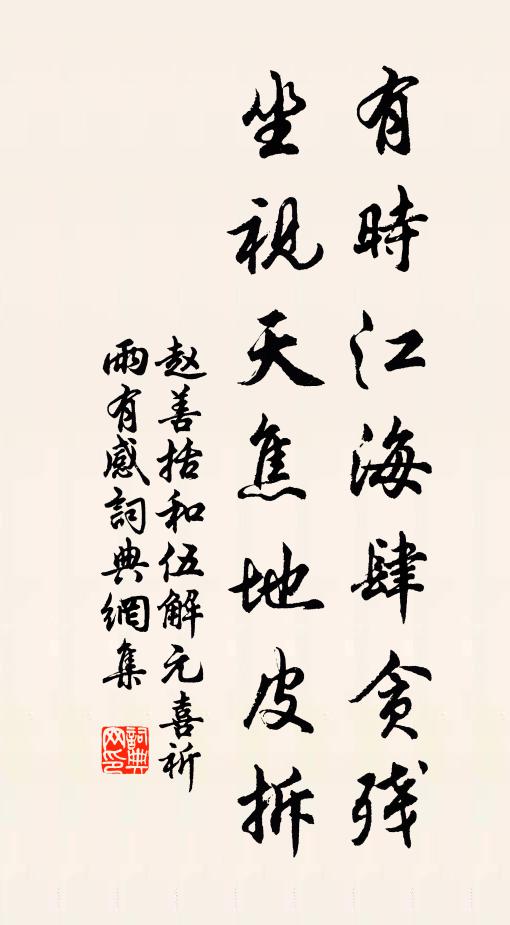 有時江海肆贪残
坐視天焦地皮拆
赵善括和伍解元喜祈
雨有感詞典網集
詞典
网印